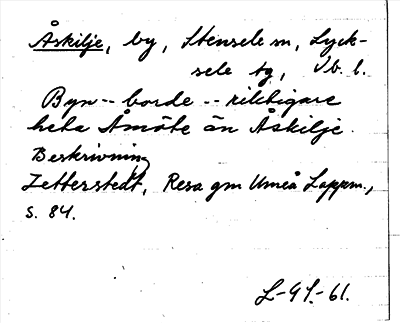 Åskilje, by, Stensele sn, Lyck-
sele tg, Vb. l.
Byn -- borde -- riktigare
heta Åmöte än Åskilje.
Beskrivning
Zetterstedt, Resa gm Umeå Lappm.,
s. 84.